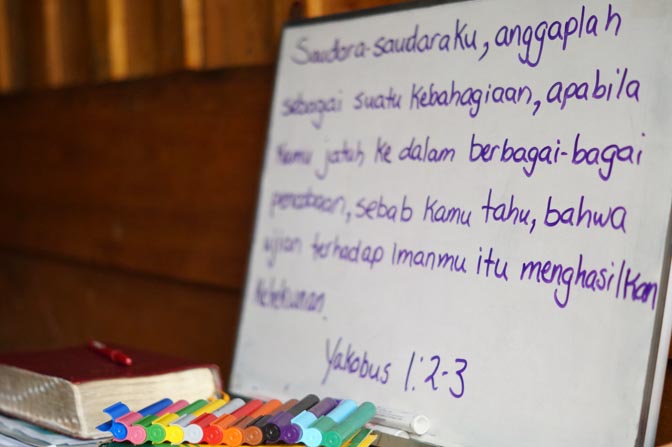 Saudara-saudaraku, anggaplah
sebagai suatu kebahagiaan, apabila
kamu jatuh ke dalam berbagai-bagai
pencobaan, sebab kamu tahu, bahwa
ujian terhadap imanmu itu menghasilkan
ketekunan.
Yakobus 1:2-3